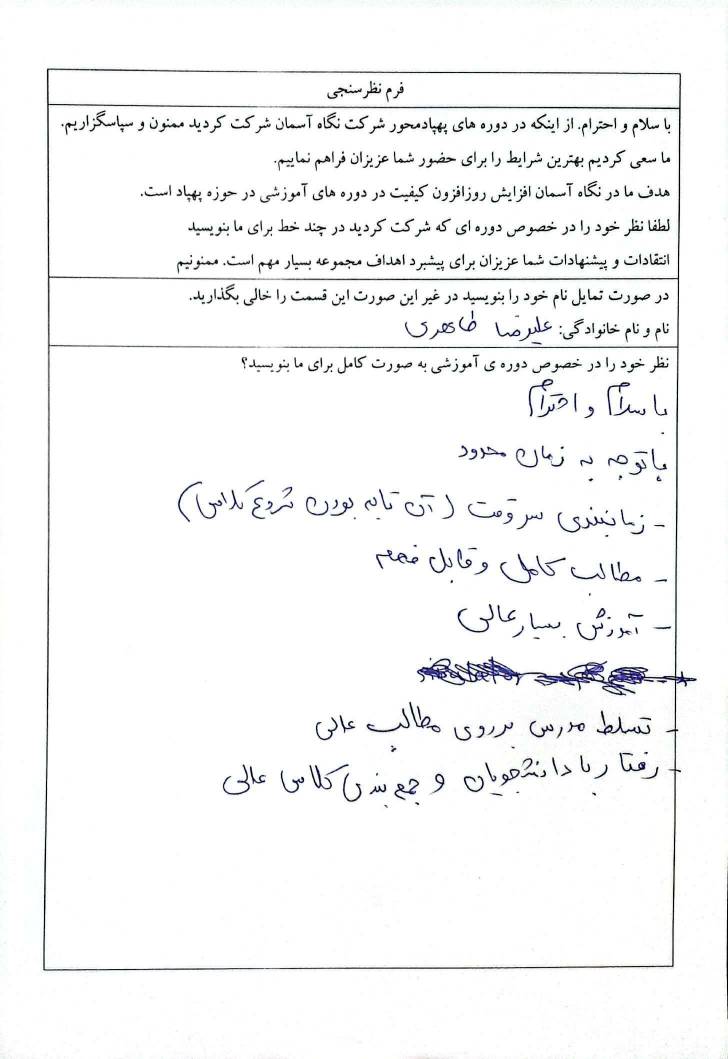 فرم نظرسنجی
با سلام و احترام. از اینکه در دوره های پهپادمحور شرکت نگاه آسمان شرکت کردید ممنون و سپاسگزاریم.
ما سعی کردیم بهترین شرایط را برای حضور شما عزیزان فراهم نماییم.
هدف ما در نگاه آسمان افزایش روزافزون کیفیت در دوره های آموزشی در حوزه پهپاد است.
لطفا نظر خود را در خصوص دوره ای که شرکت کردید در چند خط برای ما بنویسید
انتقادات و پیشنهادات شما عزیزان برای پیشبرد اهداف مجموعه بسیار مهم است. ممنونیم
در صورت تمایل نام خود را بنویسید در غیر این صورت این قسمت را خالی بگذارید.
نام و نام خانوادگی: علیرضا طاهری
نظر خود را در خصوص دوره ی آموزشی به صورت کامل برای ما بنویسید؟
با سلام و احترام
با توجه به زمان محدود
- زمانبندی سر وقت (آن تایم بودن شروع کلاس)
- مطالب کامل و قابل فهم
- آموزش بسیار عالی
- تسلط مدرس بر روی مطالب عالی
- رفتار با دانشجویان و جمع بندی کلاس عالی